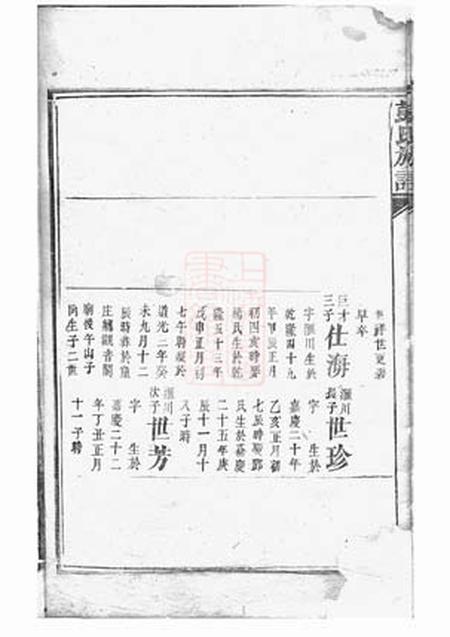 彭氏族譜
早卒
巨才
三子
仕海
字滙川生於
乾隆四十九
年甲辰正月
初四亥時娶
楊氏生於乾
隆五十三年
戊申正月初
七午時歿於
道光二年癸
未九月十二
辰時葬於
庄舖觀音閣
廟後午山子
向生子二世
滙川
長子
世珍
字 生於
嘉慶二十年
乙亥正月初
七辰時娶鄧
氏生於嘉慶
二十五年庚
辰十一月十
又子時
滙川
次子
世芳
字 生於
嘉慶二十二
年丁丑正月
十一子時